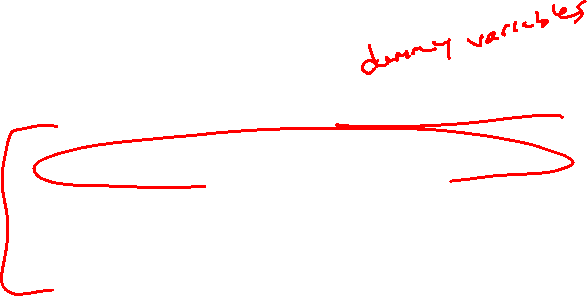 dummy variables